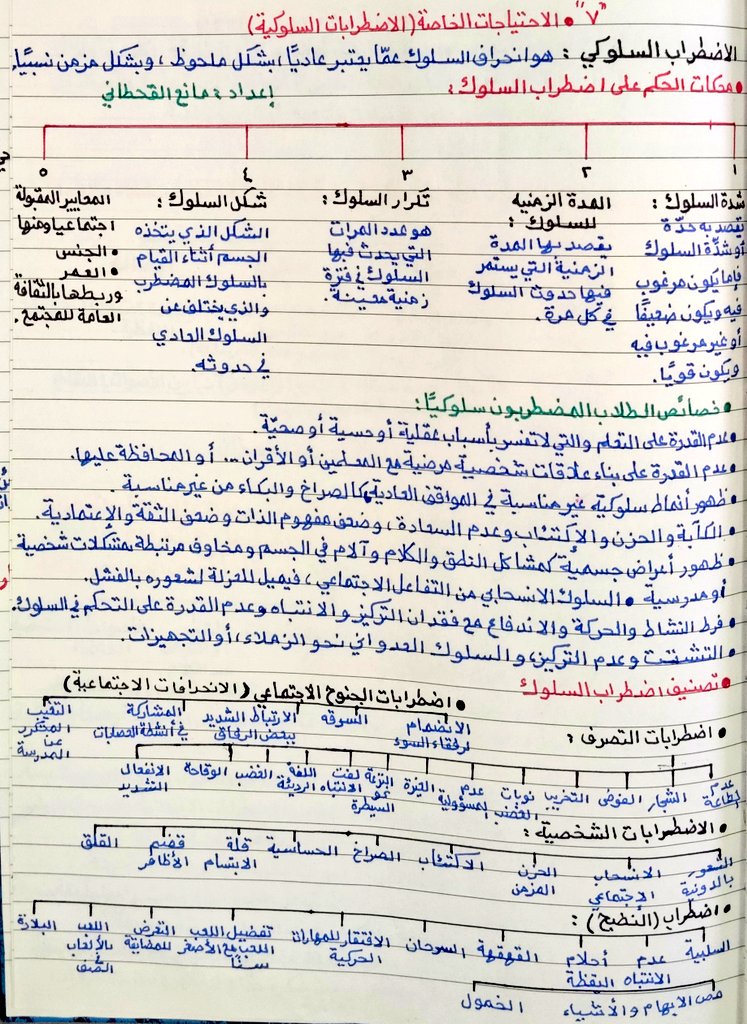 "٧" • الاحتياجات الخاصة (الاضطرابات السلوكية)
الاضطراب السلوكي : هو انحراف السلوك عمّا يعتبر عاديًا، بشكل ملحوظ، وبشكل مزمن نسبيًا.
• محكات الحكم على اضطراب السلوك:
إعداد : مانع القحطاني
١
٢
٣
٤
٥
شدة السلوك :
يقصد به حدّة
أو شدّة السلوك
فإما يكون مرغوب
فيه ويكون ضعيفًا
أو غير مرغوب فيه
ويكون قويًا.
المدة الزمنية
للسلوك :
يقصد بها المدة
الزمنية التي يستمر
فيها حدوث السلوك
في كل مرة.
تكرار السلوك :
هو عدد المرات
التي يحدث فيها
السلوك في فترة
زمنية معينة.
شكل السلوك :
الشكل الذي يتخذه
الجسم أثناء القيام
بالسلوك المضطرب
والذي يختلف عن
السلوك العادي
في حدوثه.
المعايير المقبولة
اجتماعيا ومنها
• الجنس
• العمر
وربطها بالثقافة
العامة للمجتمع.
• خصائص الطلاب المضطربون سلوكيًا:
• عدم القدرة على التعلم والتي لا تفسر بأسباب عقلية أو حسية أو صحيّة.
• عدم القدرة على بناء علاقات شخصية مرضية مع المعلمين أو الأقران ... أو المحافظة عليها.
• ظهور أنماط سلوكية غير مناسبة في المواقف العادية، كالصراخ والبكاء من غير مناسبة.
• الكآبة والحزن والاكتئاب وعدم السعادة، وضعف مفهوم الذات وضعف الثقة والإعتمادية.
• ظهور أعراض جسمية كمشاكل النطق والكلام وآلام في الجسم ومخاوف مرتبطة بمشكلات شخصية
أو مدرسية • السلوك الانسحابي من التفاعل الاجتماعي، فيميل للعزلة لشعوره بالفشل.
• فرط النشاط والحركة والاندفاع مع فقدان التركيز والانتباه وعدم القدرة على التحكم في السلوك.
• التشتت وعدم التركيز، والسلوك العدواني نحو الزملاء، أو التجهيزات.
• تصنيف اضطراب السلوك
• اضطرابات الجنوح الاجتماعي (الانحرافات الاجتماعية)
الانضمام لرفقاء السوء
السرقه
الارتباط الشديد ببعض الرفاق
المشاركة في أنشطة العصابات
التغيب المتكرر عن المدرسة
• اضطرابات التصرف :
عدم الطاعة
الشجار
الفوضى
التخريب
نوبات الغضب
عدم المسؤولية
الغيرة
النزعة نحو السيطرة
لفت الانتباه
اللغة الرديئة
الغضب
الوقاحة
الانفعال الشديد
• الاضطرابات الشخصية :
الشعور بالدونية
الانسحاب الإجتماعي
الحزن المزمن
الاكتئاب
الصراخ
الحساسية
قلة الابتسام
قضم الأظافر
القلق
• اضطراب (النضج) :
السلبية
عدم الانتباه
أحلام اليقظة
القهقهة
السرحان
الافتقار للمهارات الحركية
تفضيل اللعب مع الأصغر سنًا
التعرض للمضايقة
اللعب بالألعاب في الصف
البلادة
مص الابهام والأشياء
الخمول